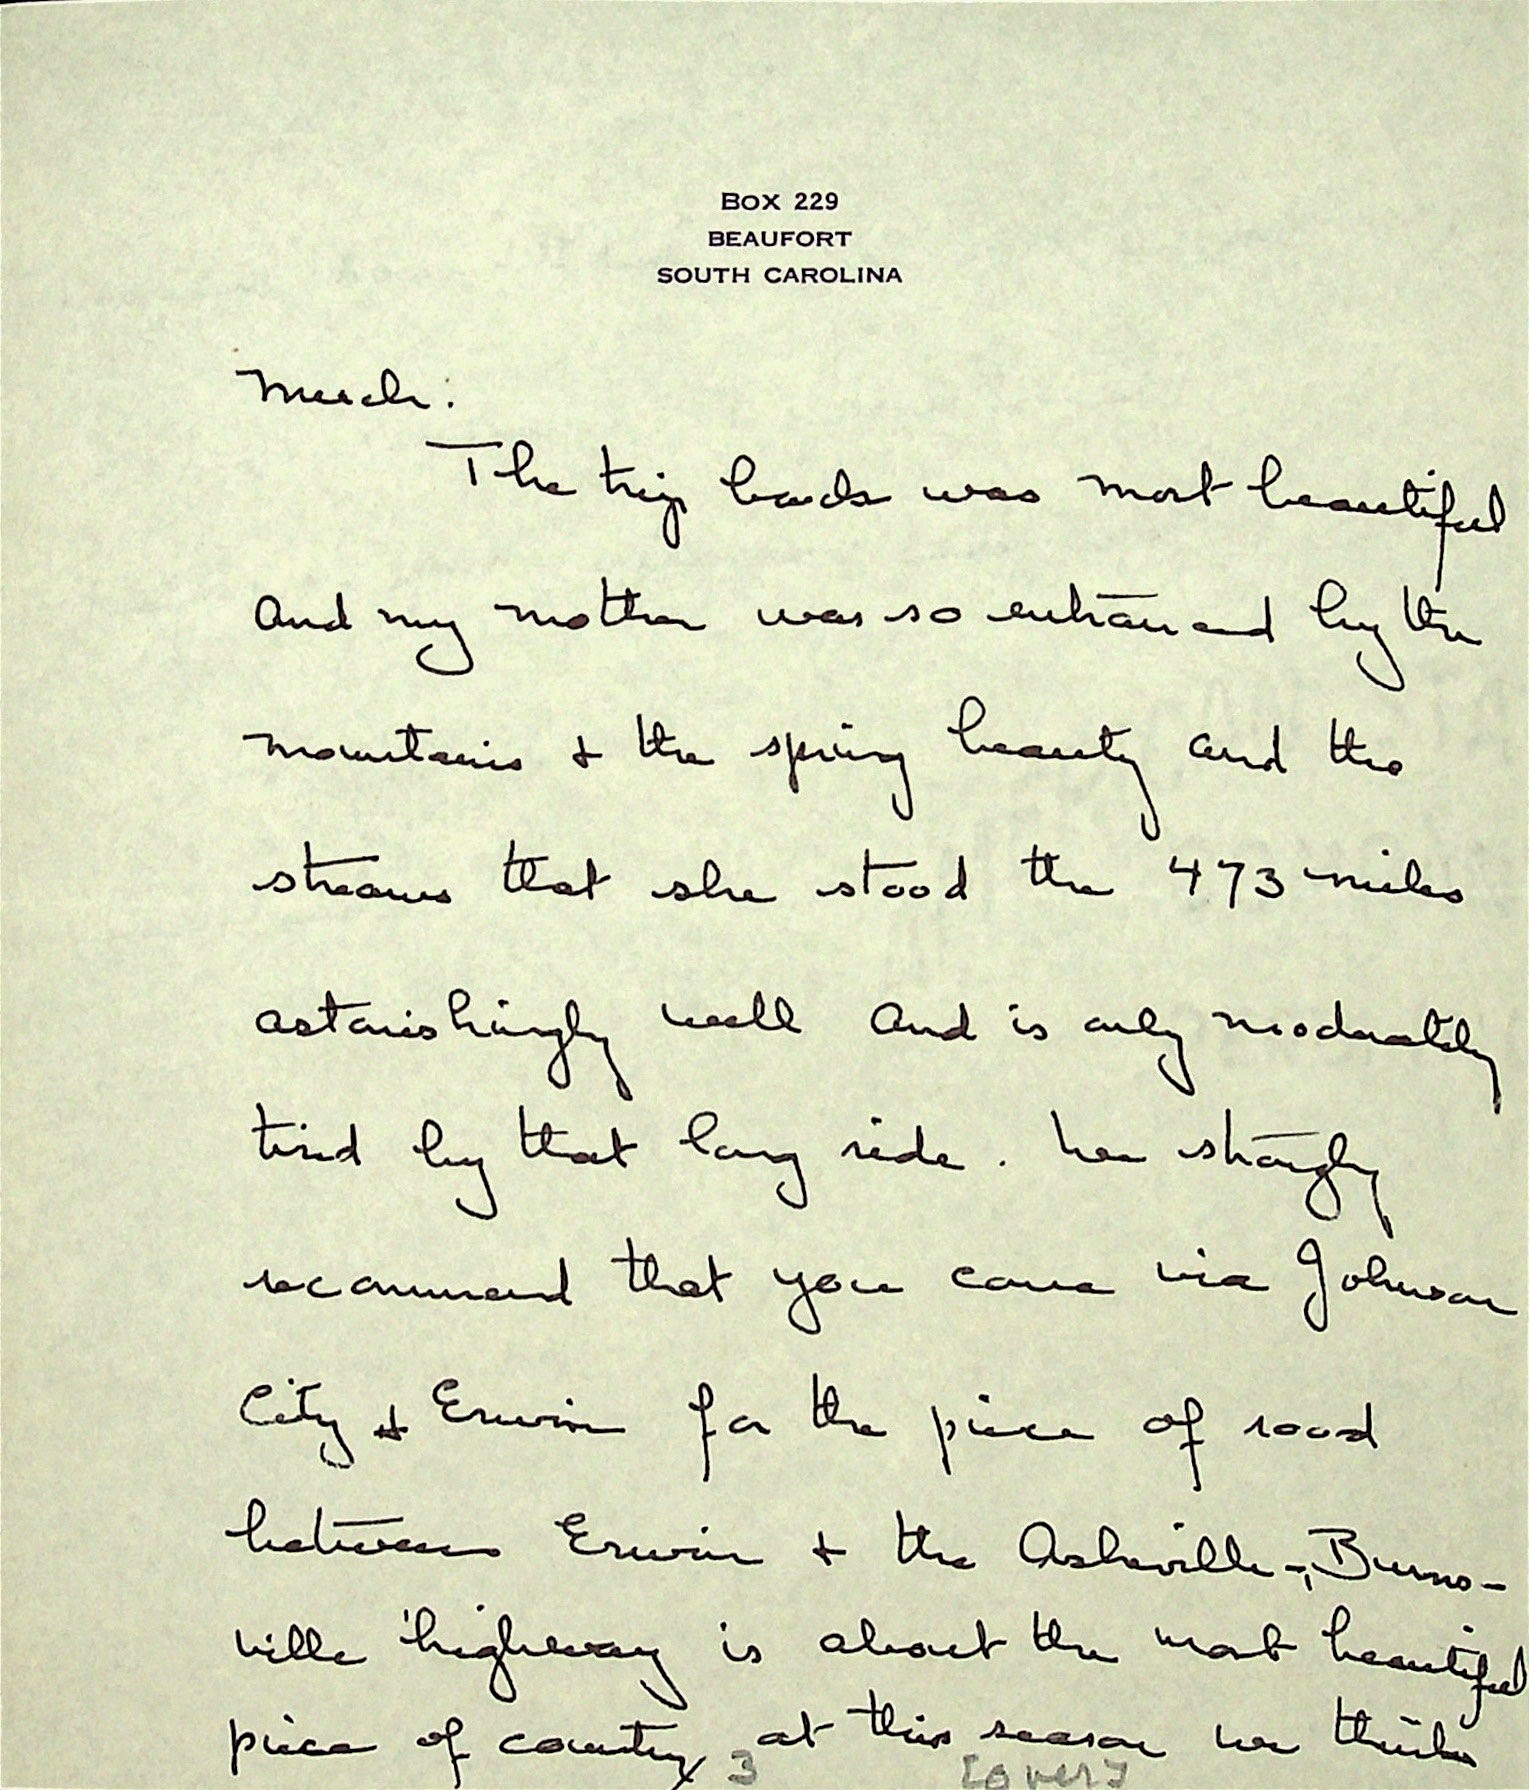 BOX 229
BEAUFORT
SOUTH CAROLINA
much.
The trip back was most beautiful
and my mother was so entranced by the
mountains & the spring beauty and the
streams that she stood the 473 miles
astonishingly well and is only moderately
tired by that long ride. We strongly
recommend that you come via Johnson
City & Erwin for the piece of road
between Erwin & the Asheville-Burns-
ville highway is about the most beautiful
piece of country at this season we think
3 [over]